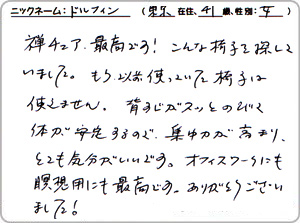 ニックネーム：ドルフィン （東京 在住、41 歳、性別：女 ）
禅チェア、最高です！こんな椅子を探して
いました。もう以前使っていた椅子は
使えません。背すじがスッとのびて
体が安定するので、集中力が高まり、
とても気分がいいです。オフィスワークにも
瞑想用にも最高です。ありがとうござい
ました！